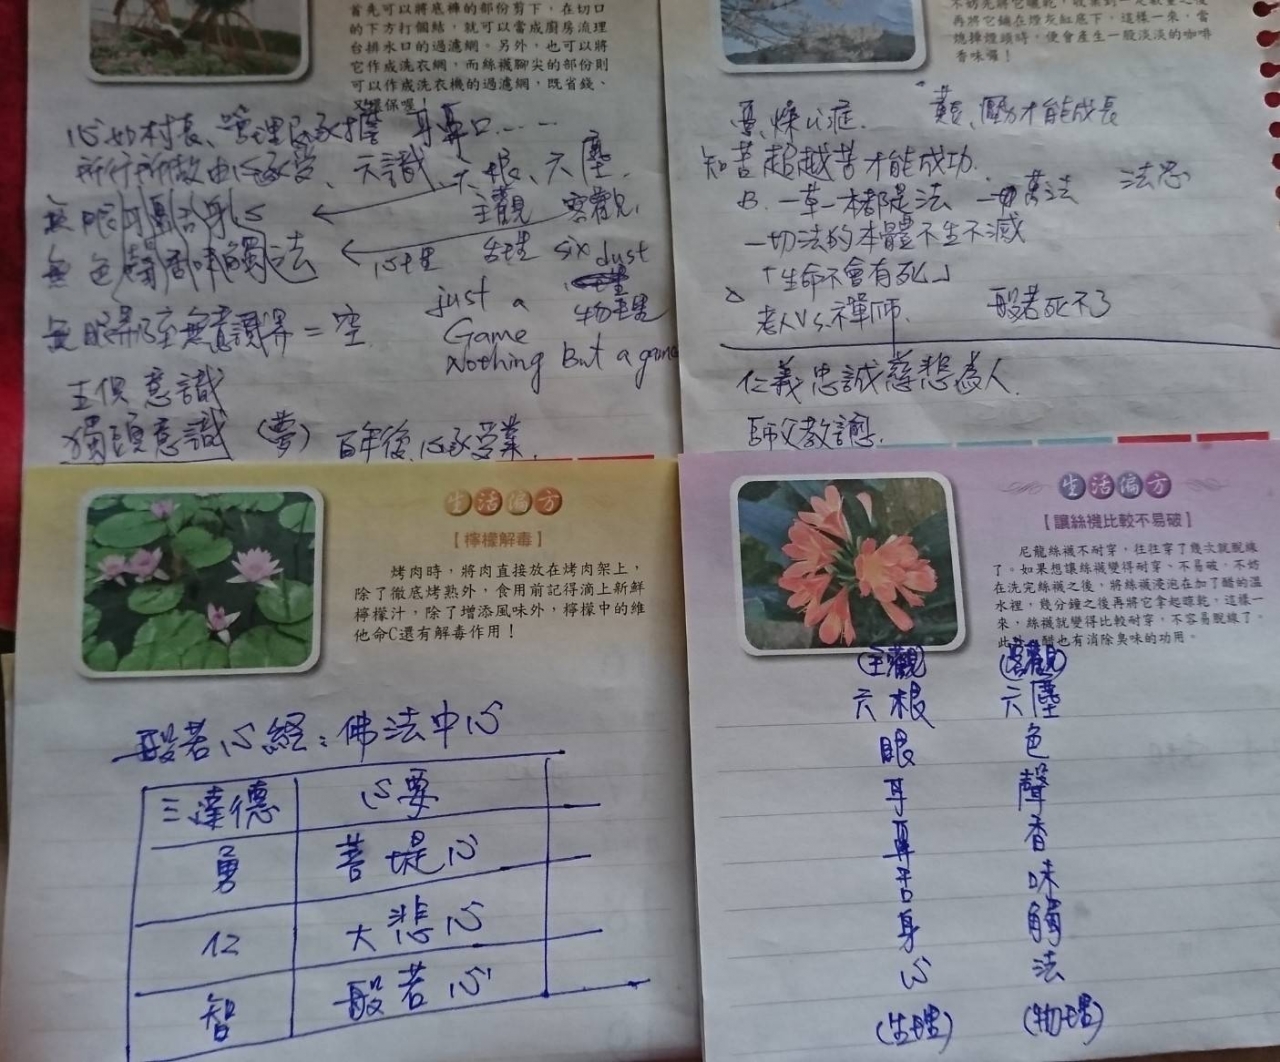 首先可以將底褲的部份剪下，在切口
的下方打個結，就可以當成廚房流理
台排水口的過濾網。另外，也可以將
它作成洗衣網，而絲襪腳尖的部份則
可以作成洗衣機的過濾網，既省錢、
又環保喔！
心如村長、管理 耳鼻口……
所行所做由心承受、六識 六根、六塵.
無眼耳鼻舌身心 主觀 客觀.
無色聲香味觸法 心理 生理 six dust
物理
just a
Game
Nothing But a game
無眼界乃至無意識界＝空.
五俱意識
獨頭意識（夢） 百年後，心承受業.
再將它鋪在煙灰缸底下，這樣一來，當
燒掉煙頭時，便會產生一股淡淡的咖啡
香味囉！
憂燥心症. 壓力才能成長
知苦超越苦才能成功.
B. 一草一木都是法 一切萬法 法思
一切法的本體不生不滅
「生命不會有死」
老人Vs.禪師. 般若死不了
仁義忠誠慈悲為人.
師父教諭.
生活偏方
【檸檬解毒】
烤肉時，將肉直接放在烤肉架上，
除了徹底烤熟外，食用前記得滴上新鮮
檸檬汁，除了增添風味外，檸檬中的維
他命C還有解毒作用！
般若心経：佛法中心
三達德 心要
勇 菩堤心
仁 大悲心
智 般若心
生活偏方
【讓絲襪比較不易破】
尼龍絲襪不耐穿，往往穿了幾次就脫線
了。如果想讓絲襪變得耐穿、不易破，不妨
在洗完絲襪之後，將絲襪浸泡在加了醋的溫
水裡，幾分鐘之後再將它拿起晾乾，這樣一
來，絲襪就變得比較耐穿，不容易脫線了。
此外，醋也有消除臭味的功用。
(主觀) (客觀)
六根 六塵
眼 色
耳 聲
鼻 香
舌 味
身 觸
心 法
(生理) (物理)